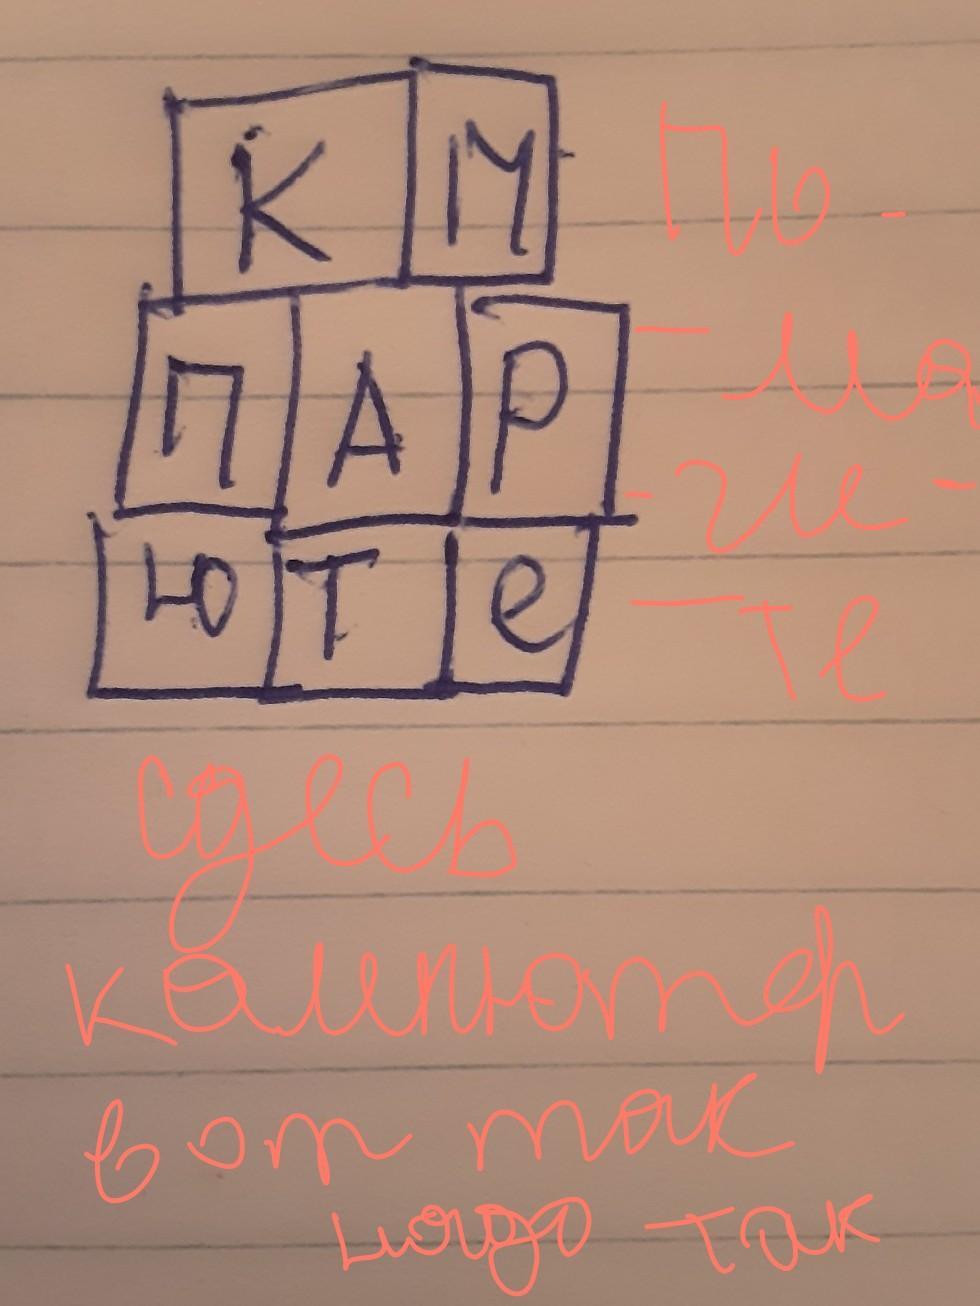 К М
П А Р
Ю Т е
По -
- ма
- ги -
- те
сдесь
кампютер
вот так
надо так